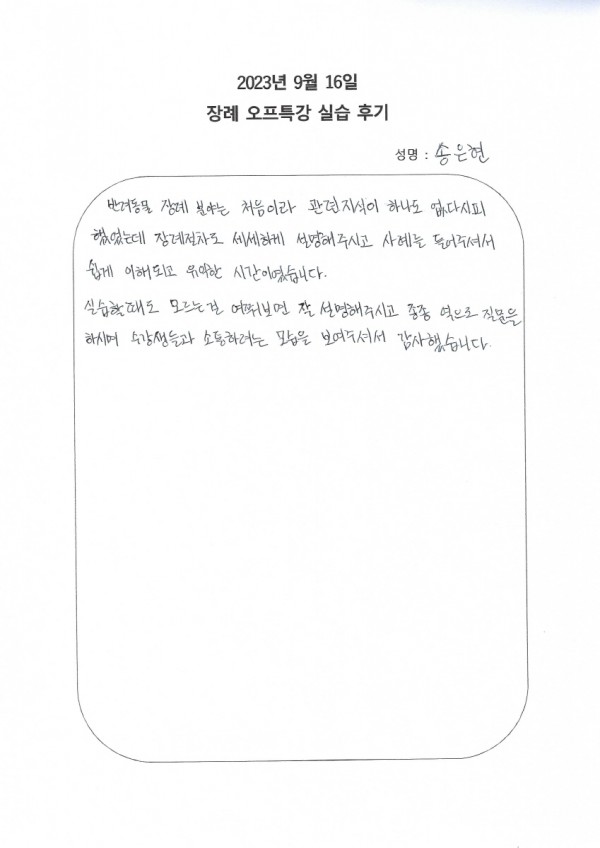 2023년 9월 16일
장례 오프특강 실습 후기
성명 : 송은현
반려동물 장례 분야는 처음이라 관련지식이 하나도 없다시피
했었는데 장례절차도 세세하게 설명해주시고 사례는 들어주셔서
쉽게 이해되고 유익한 시간이였습니다.
실습할때도 모르는건 여쭤보면 잘 설명해주시고 종종 역으로 질문을
하시며 수강생들과 소통하려는 모습을 보여주셔서 감사했습니다.